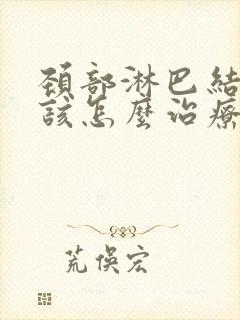 頚部淋巴結
該怎麼治療
荒俁宏